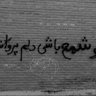 تو شمع باشی دلم پروانه